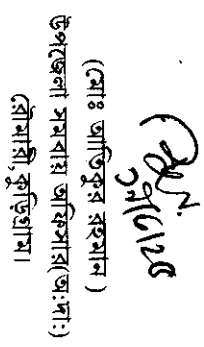 (মোঃ আতিকুর রহমান)
উপজেলা সমবায় অফিসার(অ:দা:)
রৌমারী,কুড়িগ্রাম।